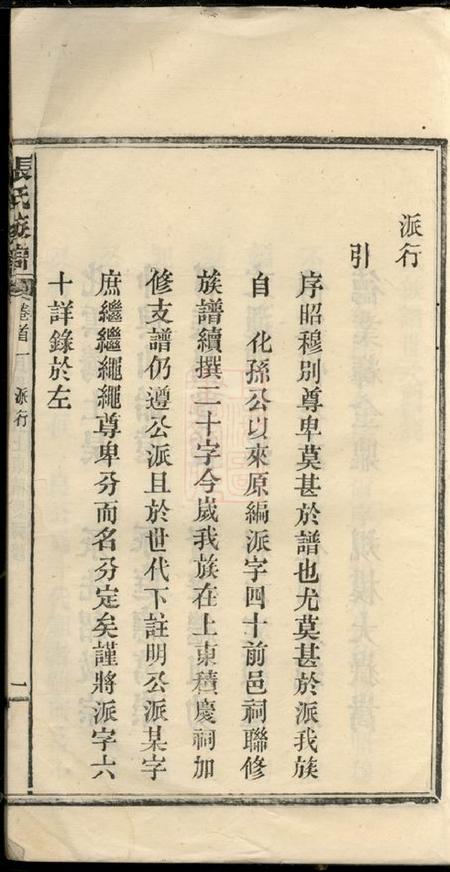 派行
引
序昭穆別尊卑莫甚於譜也尤莫甚於派我族
自 化孫公以來原編派字四十前邑祠聯修
族譜續撰二十字今歲我族在上東積慶祠加
修支譜仍遵公派且於世代下註明公派某字
庶繼繼繩繩尊卑分而名分定矣謹將派字六
十詳錄於左
張氏族譜 卷首一 派行 一